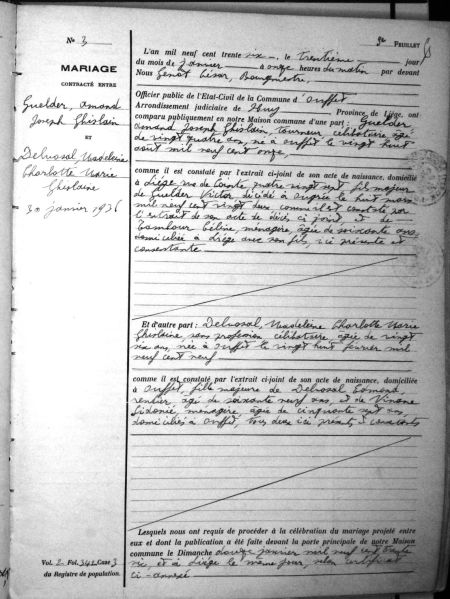 N° 3
FEUILLET
MARIAGE
CONTRACTÉ ENTRE
Guelder, Amand
Joseph Ghislain
ET
Delvosal, Madeleine
Charlotte Marie
Ghislaine
30 janvier 1936
L'an mil neuf cent trente six, le trentième jour
du mois de janvier à onze heures du matin par devant
Nous Genot César, Bourgmestre,
Officier public de l'Etat-Civil de la Commune d'Ouffet
Arrondissement judiciaire de Huy, Province de Liége, ont
comparu publiquement en notre Maison commune d'une part : Guelder,
Amand Joseph Ghislain, tourneur, célibataire, âgé
de vingt quatre ans, né à Ouffet le vingt huit
août mil neuf cent onze,
comme il est constaté par l'extrait ci-joint de son acte de naissance, domicilié
à Liége, rue de quatre vingt sept, fils majeur
de Guelder Victor décédé à Ougrée le huit mars
mil neuf cent vingt deux comme il est constaté par
l'extrait de son acte de décès ci joint et de
Tambour ménagère, âgée de soixante ans,
domiciliée à Liége avec son fils, ici présente et
consentante
Et d'autre part : Delvosal, Madeleine Charlotte Marie
Ghislaine, sans profession, célibataire, âgée de vingt
six ans, née à Ouffet le vingt huit février mil
neuf cent neuf
comme il est constaté par l'extrait ci-joint de son acte de naissance, domiciliée
à Ouffet, fille majeure de Delvosal, Edmond,
rentier, âgé de soixante neuf ans, et de
Sidonie, ménagère, âgée de cinquante sept ans,
domiciliés à Ouffet, tous deux ici présents et consentants
Lesquels nous ont requis de procéder à la célébration du mariage projeté entre
eux et dont la publication a été faite devant la porte principale de notre Maison
commune le Dimanche douze janvier mil neuf cent trente
six, et à Liége le même jour, selon certificat
ci-annexé
Vol. 2. Fol. 342 Case 3
du Registre de population.